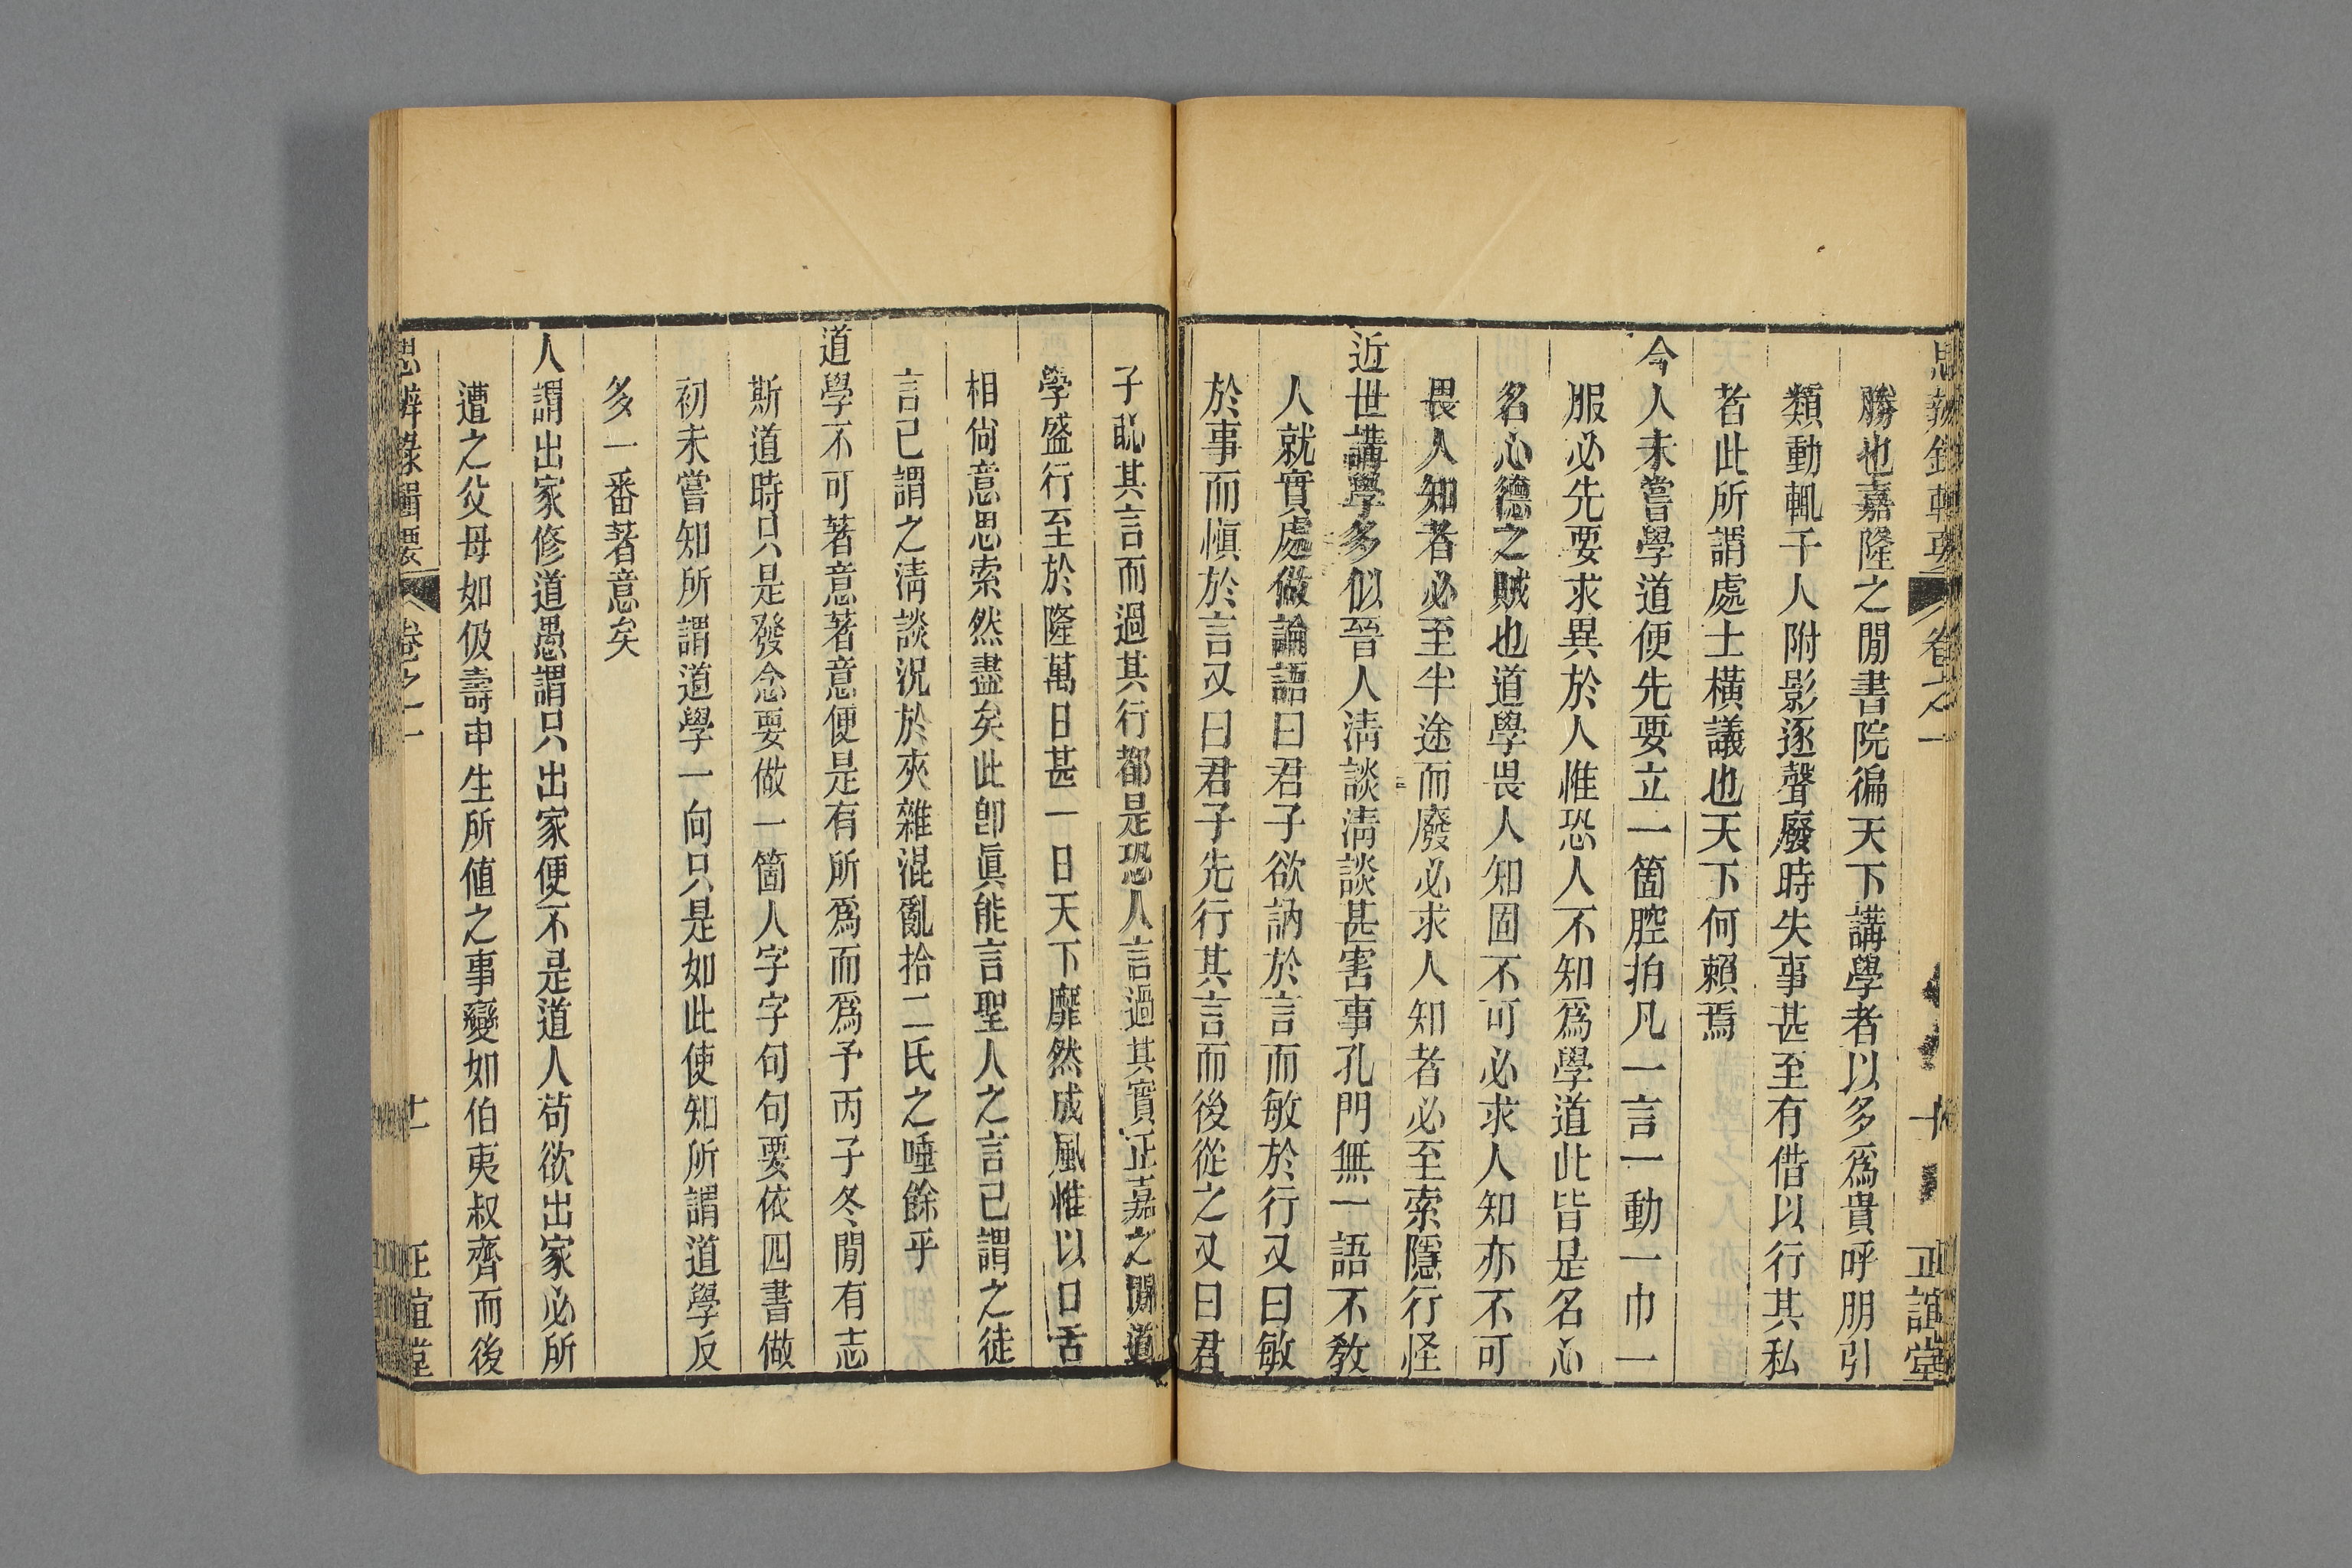 思辨錄輯要
卷之一
十
正誼堂
勝也嘉隆之閒書院徧天下講學者以多爲貴呼朋引
類動輒千人附影逐聲廢時失事甚至有借以行其私
者此所謂處士橫議也天下何賴焉
今人未嘗學道便先要立一箇腔拍凡一言一動一巾一
服必先要求異於人惟恐人不知爲學道此皆是名心
名心德之賊也道學畏人知固不可必求人知亦不可
畏人知者必至半途而廢必求人知者必至索隱行怪
近世講學多似晉人淸談淸談甚害事孔門無一語不敎
人就實處做論語曰君子欲訥於言而敏於行又曰敏
於事而愼於言又曰君子先行其言而後從之又曰君
子恥其言而過其行都是恐人言過其實正嘉之閒道
學盛行至於隆萬日甚一日天下靡然成風惟以口舌
相尙意思索然盡矣此卽眞能言聖人之言已謂之徒
言已謂之淸談況於夾雜混亂拾二氏之唾餘乎
道學不可著意著意便是有所爲而爲予丙子冬閒有志
斯道時只是發念要做一箇人字字句句要依四書做
初未嘗知所謂道學一向只是如此使知所謂道學反
多一番著意矣
人謂出家修道愚謂只出家便不是道人苟欲出家必所
遭之父母如伋壽申生所値之事變如伯夷叔齊而後
思辨錄輯要
卷之一
十一
正誼堂